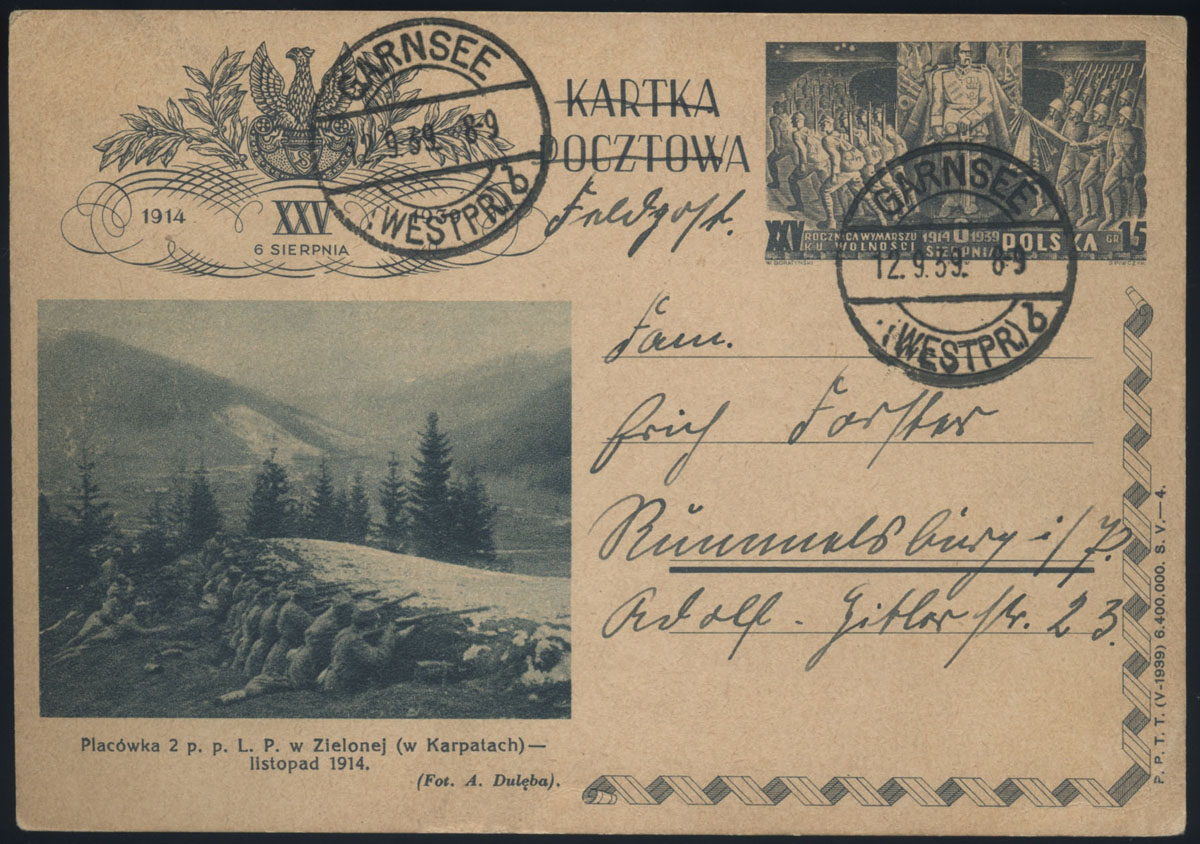 GARNSEE
12.9.39. 8-9
(WESTPR) b
KARTKA
POCZTOWA
Feldpost.
1914 XXV 1939
6 SIERPNIA
S
XXV ROCZNICA WYMARSZU 1914 1939 POLSKA GR 15
KU WOLNOŚCI SIERPNIA
GARNSEE
12.9.39. 8-9
(WESTPR) b
Fam.
Erich Forster
Rummelsburg i/P.
Adolf-Hitlerstr. 23.
Placówka 2 p. p. L. P. w Zielonej (w Karpatach)—
listopad 1914.
(Fot. A. Dulęba).
P. P. T. T. (V-1939) 6.400.000. S. V.—4.